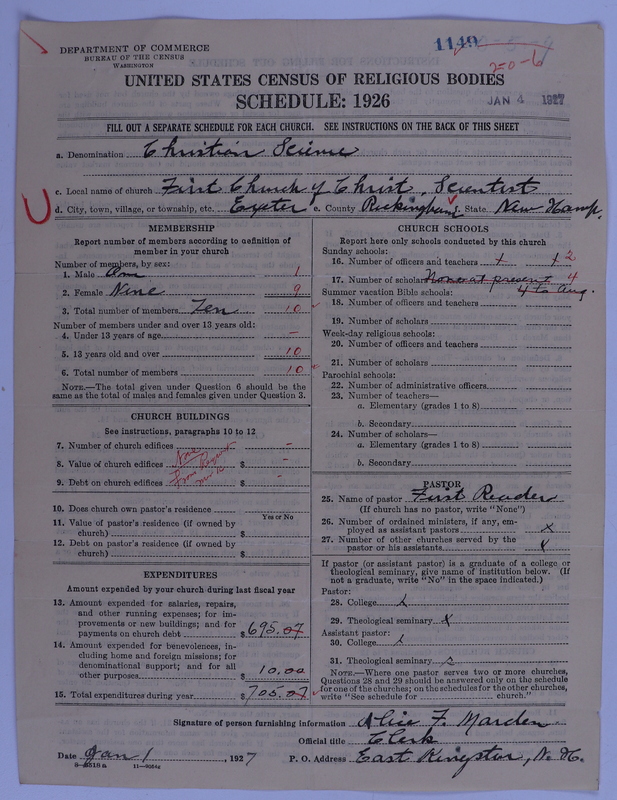 1149
20-6
DEPARTMENT OF COMMERCE
BUREAU OF THE CENSUS
WASHINGTON
UNITED STATES CENSUS OF RELIGIOUS BODIES
SCHEDULE: 1926
JAN 4 1927
FILL OUT A SEPARATE SCHEDULE FOR EACH CHURCH. SEE INSTRUCTIONS ON THE BACK OF THIS SHEET
a. Denomination Christian Science
c. Local name of church First Church of Christ, Scientist
d. City, town, village, or township, etc. Exeter e. County Rockingham f. State New Hamp.
MEMBERSHIP
Report number of members according to definition of
member in your church
Number of members, by sex:
1. Male One 1
2. Female Nine 9
3. Total number of members Ten 10
Number of members under and over 13 years old:
4. Under 13 years of age –
5. 13 years old and over 10
6. Total number of members 10
NOTE.—The total given under Question 6 should be the
same as the total of males and females given under Question 3.
CHURCH BUILDINGS
See instructions, paragraphs 10 to 12
7. Number of church edifices –
8. Value of church edifices None $ –
9. Debt on church edifices From $ –
10. Does church own pastor's residence
Yes or No
11. Value of pastor's residence (if owned by
church) $
12. Debt on pastor's residence (if owned by
church) $
EXPENDITURES
Amount expended by your church during last fiscal year
13. Amount expended for salaries, repairs,
and other running expenses; for im-
provements or new buildings; and for
payments on church debt $ 695.07
14. Amount expended for benevolences, in-
cluding home and foreign missions; for
denominational support; and for all
other purposes $ 10.00
15. Total expenditures during year $ 705.07
CHURCH SCHOOLS
Report here only schools conducted by this church
Sunday schools:
16. Number of officers and teachers 2
17. Number of scholars None at present 4
4 to Aug.
Summer vacation Bible schools:
18. Number of officers and teachers
19. Number of scholars
Week-day religious schools:
20. Number of officers and teachers
21. Number of scholars
Parochial schools:
22. Number of administrative officers
23. Number of teachers—
a. Elementary (grades 1 to 8)
b. Secondary
24. Number of scholars—
a. Elementary (grades 1 to 8)
b. Secondary
PASTOR
25. Name of pastor First Reader
(If church has no pastor, write "None")
26. Number of ordained ministers, if any, em-
ployed as assistant pastors x
27. Number of other churches served by the
pastor or his assistants x
If pastor (or assistant pastor) is a graduate of a college or
theological seminary, give name of institution below. (If
not a graduate, write "No" in the space indicated.)
Pastor:
28. College x
29. Theological seminary x
Assistant pastor:
30. College x
31. Theological seminary x
NOTE.—Where one pastor serves two or more churches,
Questions 28 and 29 should be answered only on the schedule
for one of the churches; on the schedules for the other churches,
write "See schedule for church."
Signature of person furnishing information Alice F. Marden
Official title Clerk
Date Jan 1, 1927 P. O. Address East Kingston, N. H.
8—5518a 11—9054c